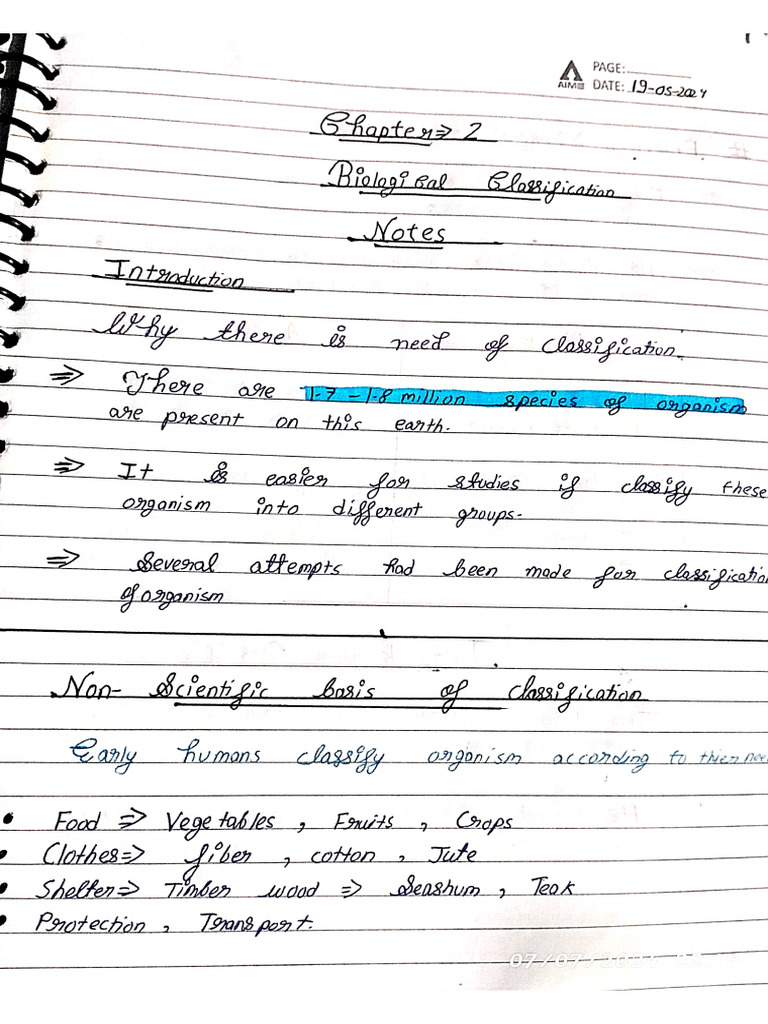 PAGE:
AIM
DATE: 19-05-2024
Chapter⇒ 2
Biological Classification
Notes
Introduction
Why there is need of classification.
⇒ There are 1.7 – 1.8 million species of organism
are present on this earth.
⇒ It is easier for studies if classify these
organism into different groups.
⇒ Several attempts had been made for classification
of organism
Non- Scientific basis of classification
Early humans classify organism according to thier nee
• Food ⇒ Vegetables , Fruits , Crops
• Clothes⇒ fiber , cotton , Jute
• Shelter⇒ Timber wood ⇒ Seashum , Teak
• Protection , Transport.